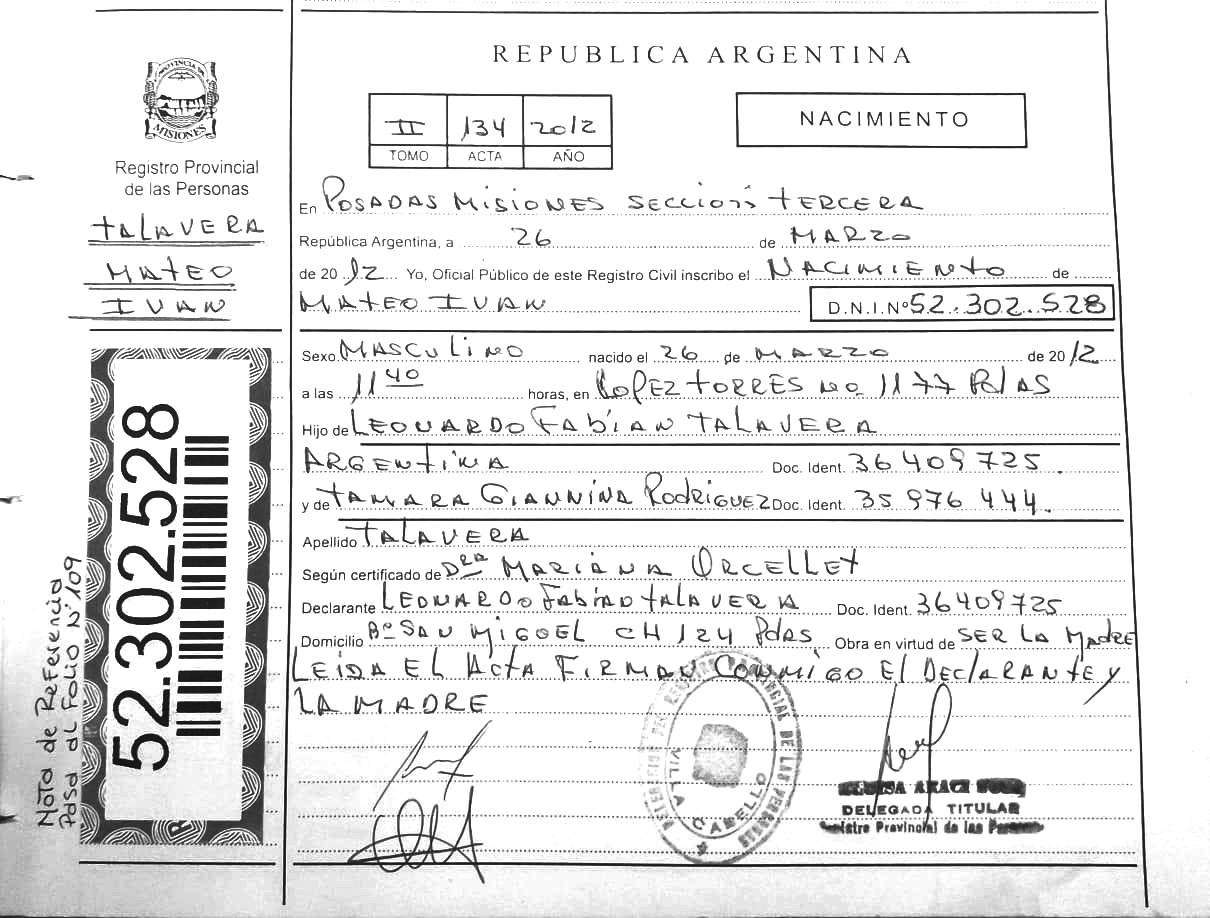 REPUBLICA ARGENTINA
PROVINCIA DE
MISIONES
Registro Provincial
de las Personas
TALAVERA
MATEO
IVAN
II 134 2012
TOMO ACTA AÑO
NACIMIENTO
En POSADAS MISIONES SECCION TERCERA
República Argentina, a 26 de MARZO
de 2012 Yo, Oficial Público de este Registro Civil inscribo el NACIMIENTO de
MATEO IVAN D.N.I.Nº 52.302.528
Sexo MASCULINO nacido el 26 de MARZO de 2012
a las 11 40 horas, en LOPEZ TORRES No. 1177 PDAS
Hijo de LEONARDO FABIAN TALAVERA
ARGENTINA Doc. Ident. 36409725.
y de TAMARA GIANNINA RODRIGUEZ Doc. Ident. 35 976 444.
Apellido TALAVERA
Según certificado de Dra MARIANA ORCELLET
Declarante LEONARDO FABIAN TALAVERA Doc. Ident. 36409725
Domicilio Bº SAN MIGUEL CH 124 Pdas. Obra en virtud de SER LA MADRE
LEIDA EL ACTA FIRMAN CONMIGO EL DECLARANTE Y
LA MADRE
52.302.528
Nota de Referencia
Pasa al Folio Nº 109
VILLA CABELLO
DELEGADA TITULAR
Registro Provincial de las Personas